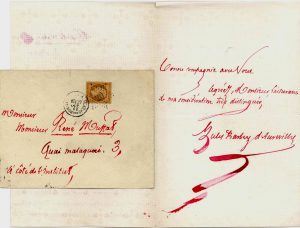 Monsieur
Monsieur René
Quai malaquais. 3,
à côté de l'Institut,
bonne compagnie avec Vous
Agréez, Monsieur l'assurance
de ma considération très distinguée,
Jules Barbey d'Aurevilly